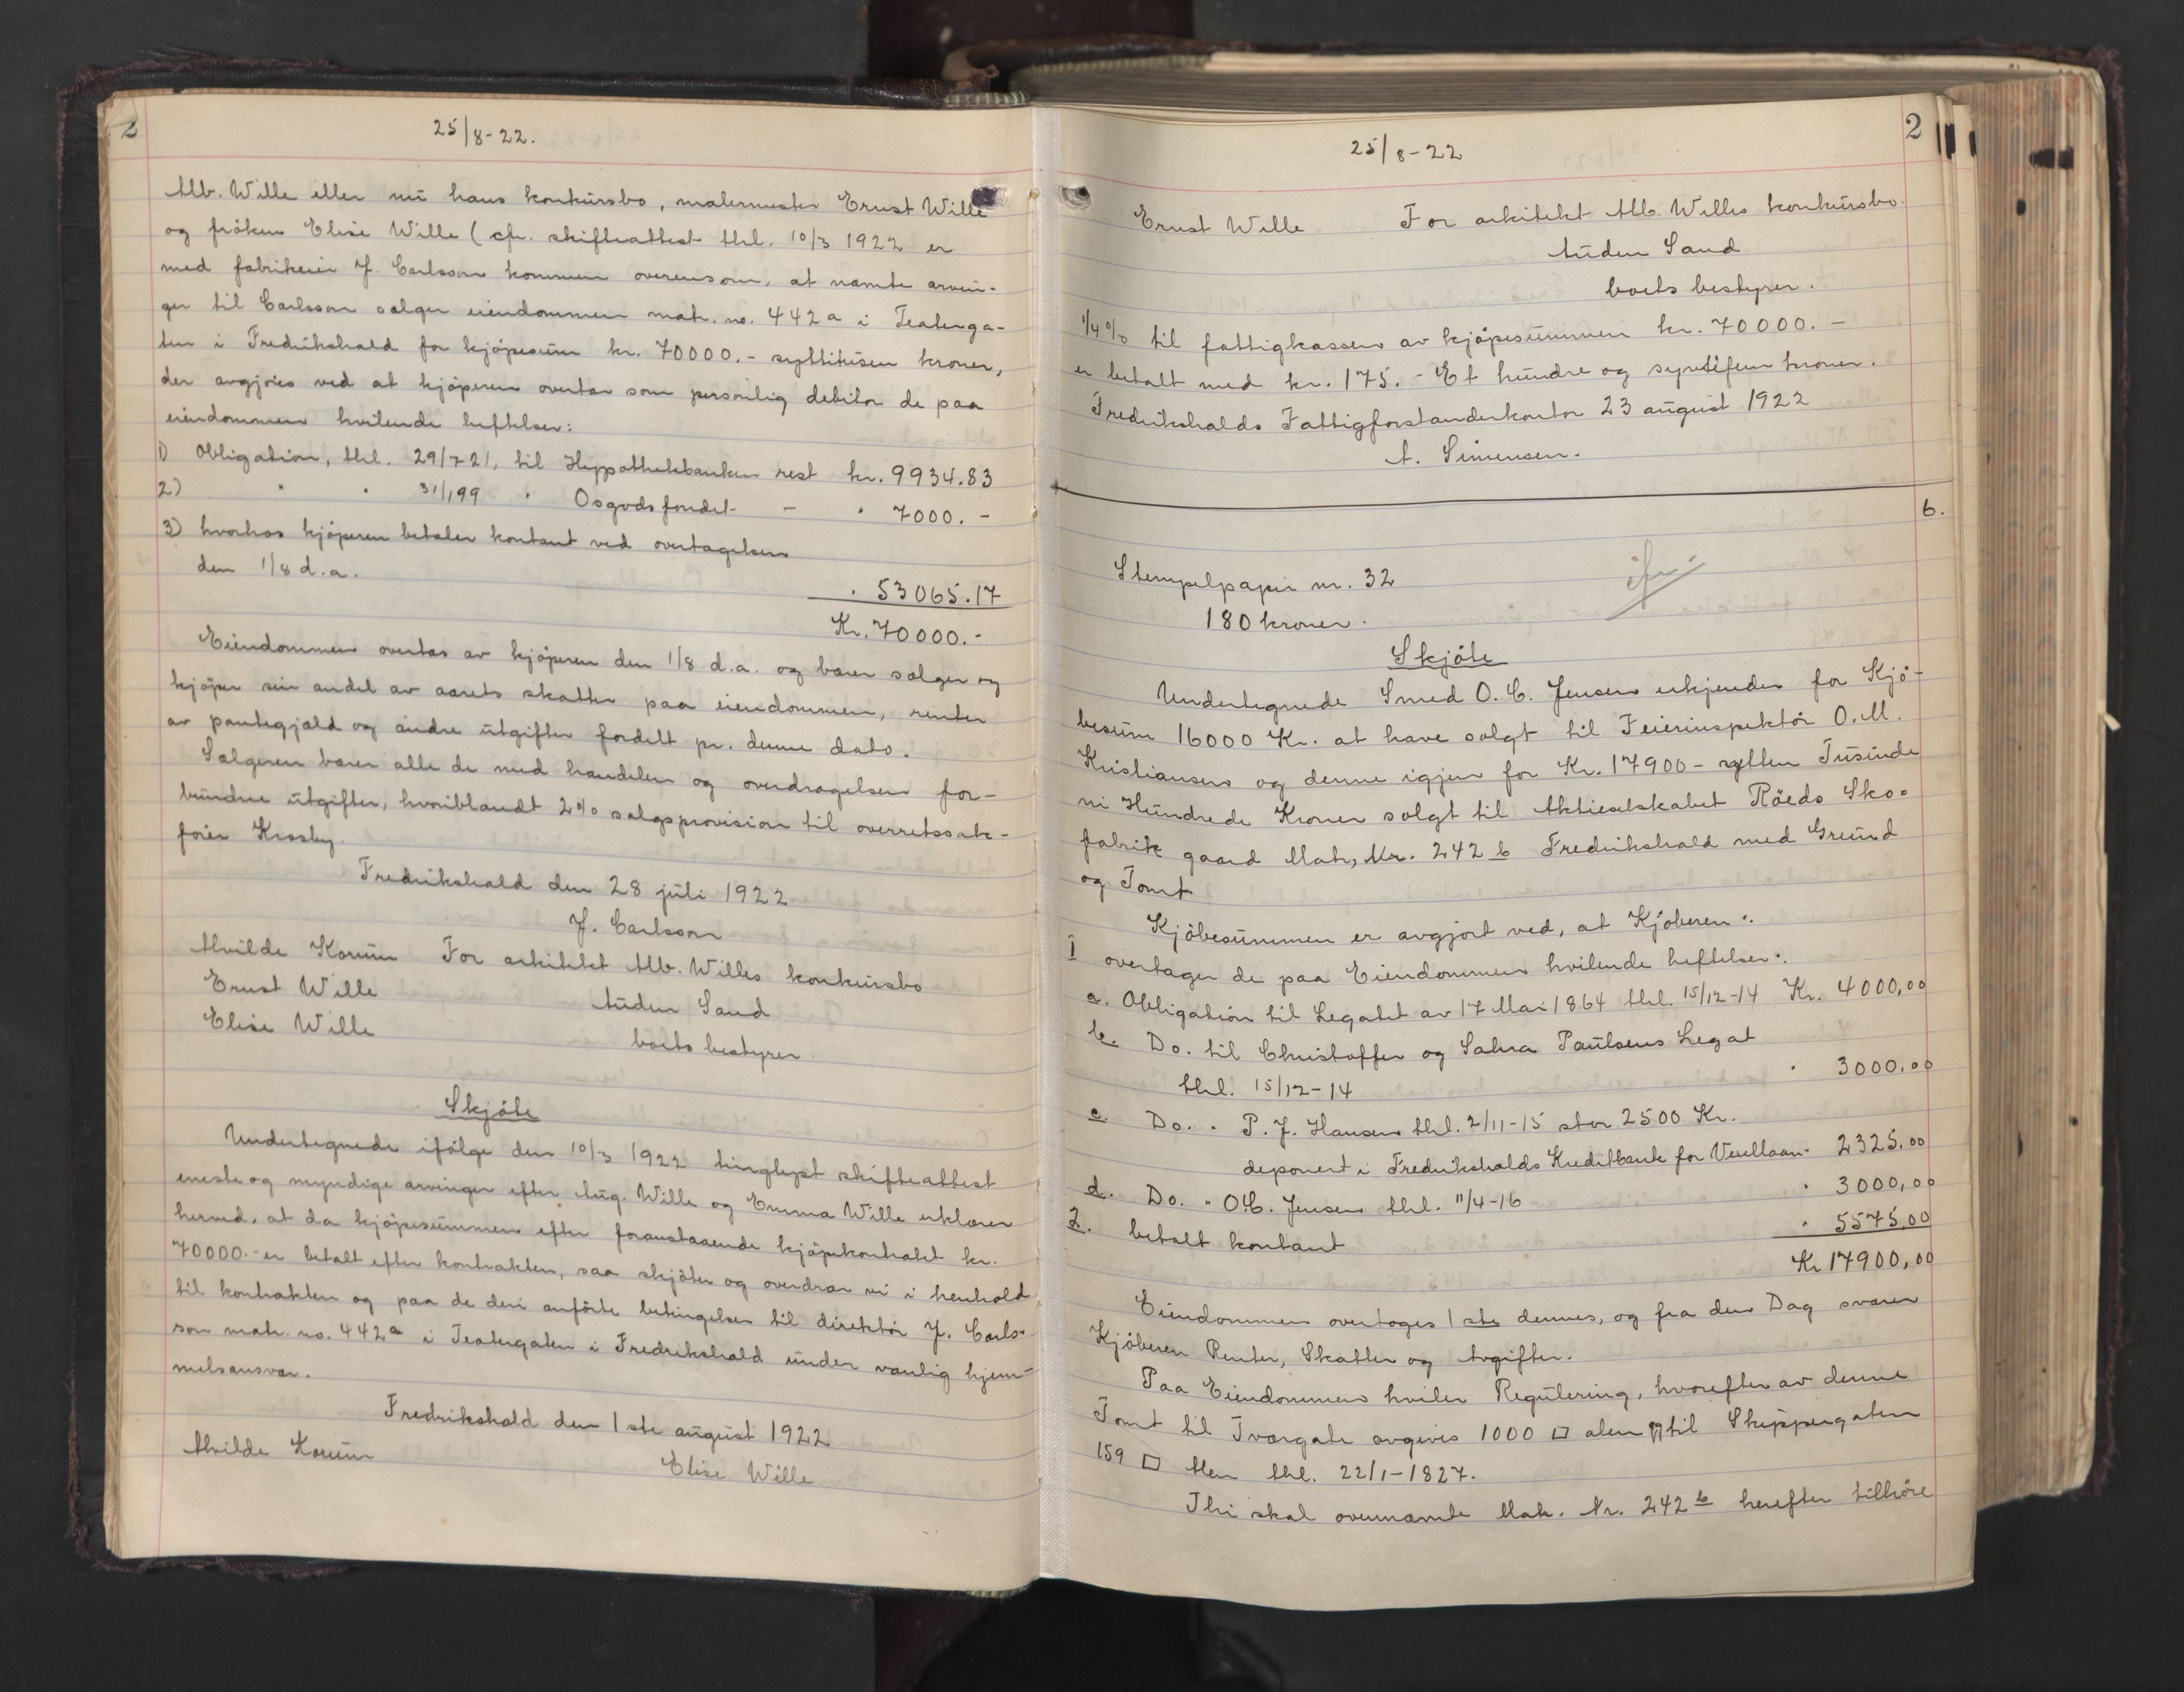 2
25/8-22.
Alb. Wille eller nu hans konkursbo, malermester Ernst Wille
og fröken Elise Wille (cfr. skifteattest thl. 10/3 1922 er
med fabrikeier J. Carlsson kommen overens om, at nævnte arvin-
ger til Carlsson sælger eiendommen matr. no. 442a i Teaterga-
ten i Fredrikshald for kjöpesum kr. 70000.- syttitusen kroner,
der avgjöres ved at kjöperen overtar som personlig debitor de paa
eiendommen hvilende heftelser:
1) Obligation, thl. 29/7 21, til Hyppothekbanken rest kr. 9934.83
2) " " 31/1 99 " Osgodsfondet - " 7000.-
3) hvorhos kjöperen betaler kontant ved overtagelsen
den 1/8 d.a. " 53065.17
Kr. 70000.-
Eiendommen overtas av kjöperen den 1/8 d.a. og bærer sælger og
kjöper sin andel av aarets skatter paa eiendommen, renter
av pantegjæld og andre utgifter fordelt pr. denne dato.
Sælgeren bærer alle de med handelen og overdragelsen for-
bundne utgifter, hvoriblandt 2% salgsprovision til overretssak-
förer Krosby.
Fredrikshald den 28 juli 1922
J. Carlsson
Alvilde Korum For arkitekt Alb. Willes konkursbo
Ernst Wille Auden Sand
Elise Wille boets bestyrer.
Skjöte
Undertegnede ifölge den 10/3 1922 tinglyst skifteattest
eneste og myndige arvinger efter Aug. Wille og Emma Wille erklærer
herved, at da kjöpesummen efter foranstaaende kjöpekontrakt kr.
70000.- er betalt efter kontrakten, saa skjöter og overdrar vi i henhold
til kontrakten og paa de deri anförte betingelser til direktör J. Carls-
son matr. no. 442a i Teatergaten i Fredrikshald under vanlig hjem-
melsansvar.
Fredrikshald den 1ste august 1922
Alvilde Korum Elise Wille
2
25/8-22
Ernst Wille For arkitekt Alb. Willes konkursbo.
Auden Sand
boets bestyrer.
1/4% til fattigkassen av kjöpesummen kr. 70000.-
er betalt med kr. 175.- Et hundre og syvtifem kroner.
Fredrikshalds Fattigforstanderkontor 23 august 1922
A. Simensen.
6.
Stempelpapir nr. 32
180 kroner.
Skjöte
Undertegnede Smed O. C. Jensen erkjender for Kjö-
besum 16000 Kr. at have solgt til Feierinspektör O. M.
Kristiansen og denne igjen for Kr. 17900 - sytten Tusinde
ni Hundrede Kroner solgt til Aktieselskabet Röeds Sko-
fabrik gaard Matr, Nr. 242 b Fredrikshald med Grund
og Tomt
Kjöbesummen er avgjort ved, at Kjöberen:
I overtager de paa Eiendommen hvilende heftelser:
a. Obligation til Legatet av 17 Mai 1864 thl. 15/12-14 Kr. 4000,00
b. Do. til Christoffer og Sahra Paulsens Legat
thl. 15/12-14 " 3000,00
c. Do. " P. J. Hansen thl. 2/11-15 stor 2500 Kr.
deponert i Fredrikshalds Kreditbank for Vexellaan " 2325,00
d. Do. " O.C. Jensen thl. 11/4-16 " 3000,00
2. betalt kontant " 5575,00
Kr 17900,00
Eiendommen overtages 1ste dennes, og fra den Dag svarer
Kjöberen Renter, Skatter og Avgifter.
Paa Eiendommen hviler Regulering, hvorefter av denne
Tomt til Tværgate avgives 1000 □ alen til Skippergaten
159 □ Alen thl. 22/1-1827.
Thi skal ovennævnte Matr. Nr. 242 b herefter tilhöre